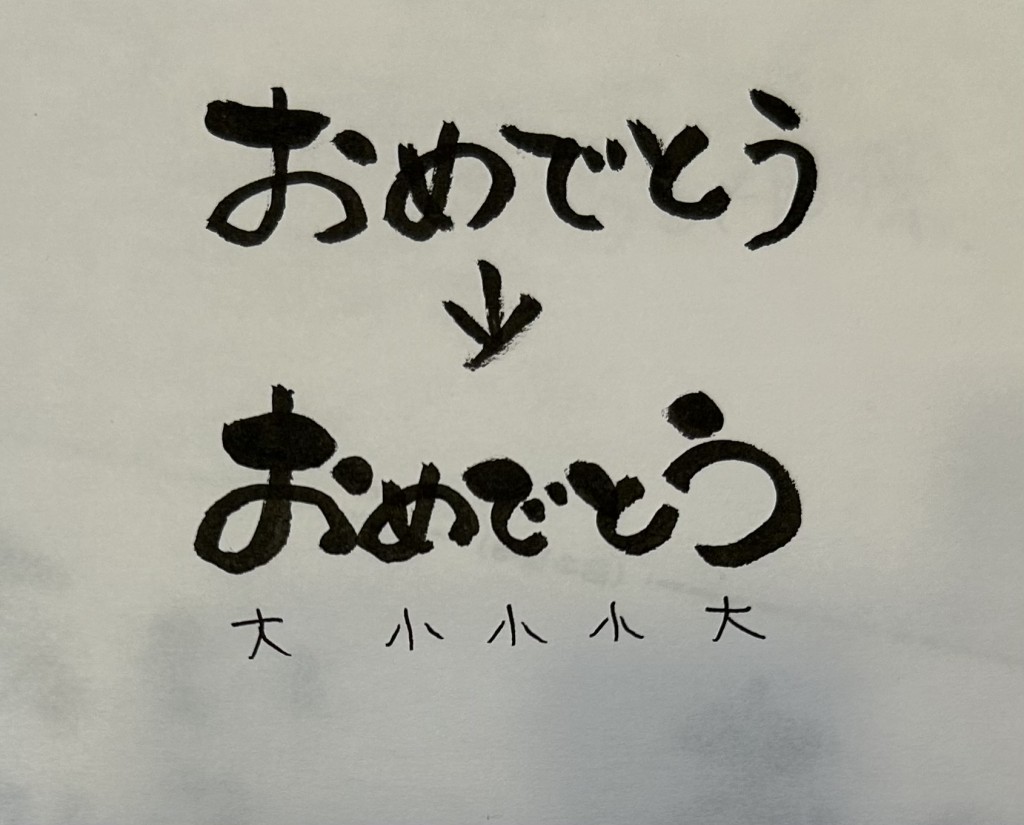 おめでとう
↓
おめでとう
大 小 小 小 大